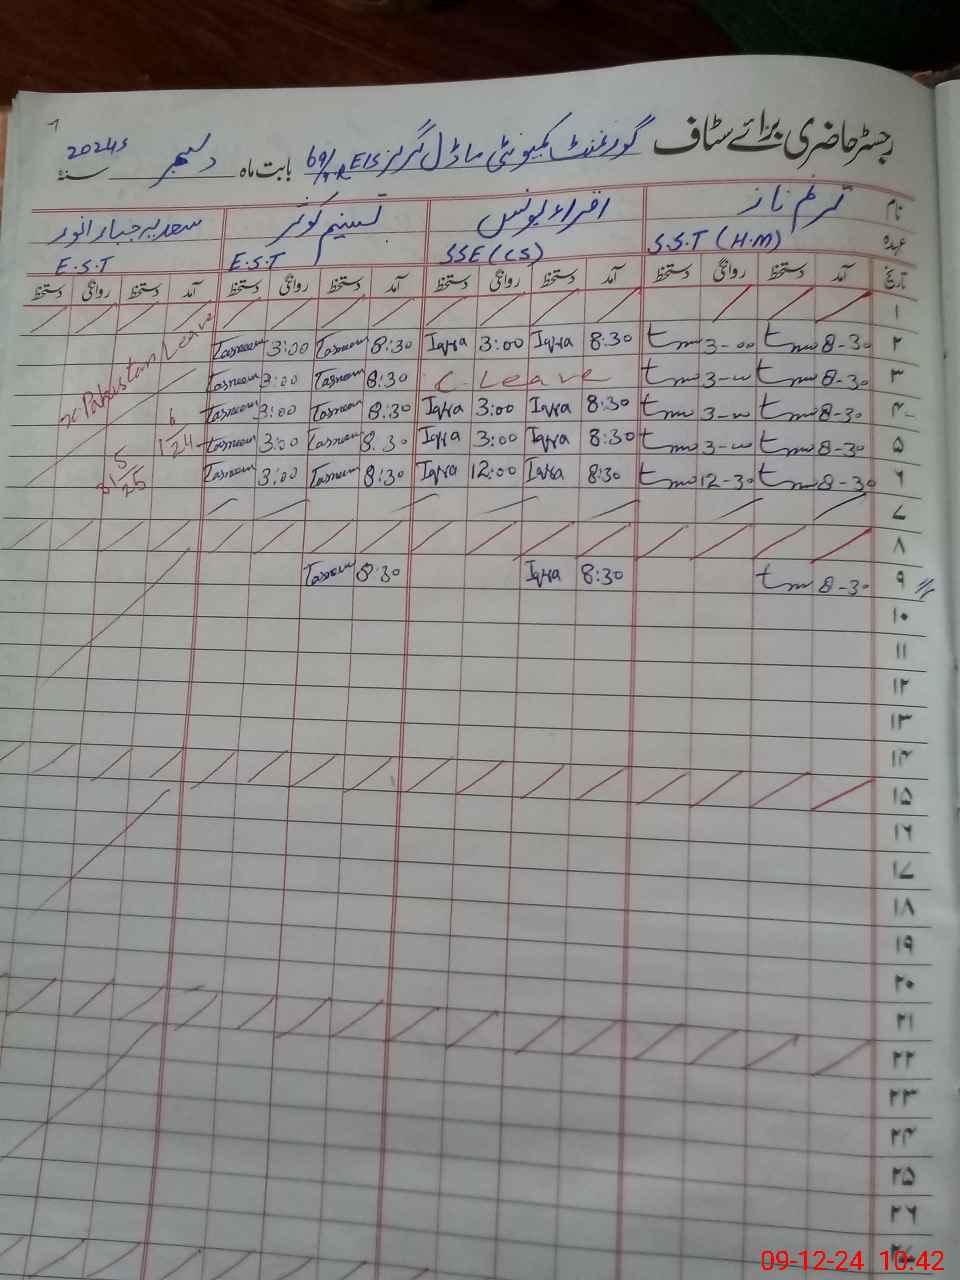 رجسٹر حاضری برائے سٹاف گورنمنٹ کمیونٹی ماڈل گرلز E/S 69/ بابت ماہ دسمبر سنہ 2024ء
نام ترنم ناز اقراء یونس تسنیم کوثر سعدیہ جبار انور
عہدہ S.S.T (H.M) SSE (CS) E.S.T E.S.T
تاریخ آمد دستخط روانگی دستخط آمد دستخط روانگی دستخط آمد دستخط روانگی دستخط آمد دستخط روانگی دستخط
۱
۲ 8-30 3-00 8:30 Iqra 3:00 Iqra 8:30 Tasneem 3:00 Tasneem
۳ 8-30 C-Leave 8:30 Tasneem 3:00 Tasneem
۴ 8-30 8:30 Iqra 3:00 Iqra 8:30 Tasneem 3:00 Tasneem
۵ 8-30 8:30 Iqra 3:00 Iqra 8:30 Tasneem 3:00 Tasneem
۶ 8-30 12-30 8:30 Iqra 12:00 Iqra 8:30 Tasneem 3:00 Tasneem
Ex Pakistan Leave
6
124
5
31-25
۷
۸
۹ 8-30 8:30 Iqra 8:30 Tasneem
۱۰
۱۱
۱۲
۱۳
۱۴
۱۵
۱۶
۱۷
۱۸
۱۹
۲۰
۲۱
۲۲
۲۳
۲۴
۲۵
۲۶
۲۷
09-12-24 10:42